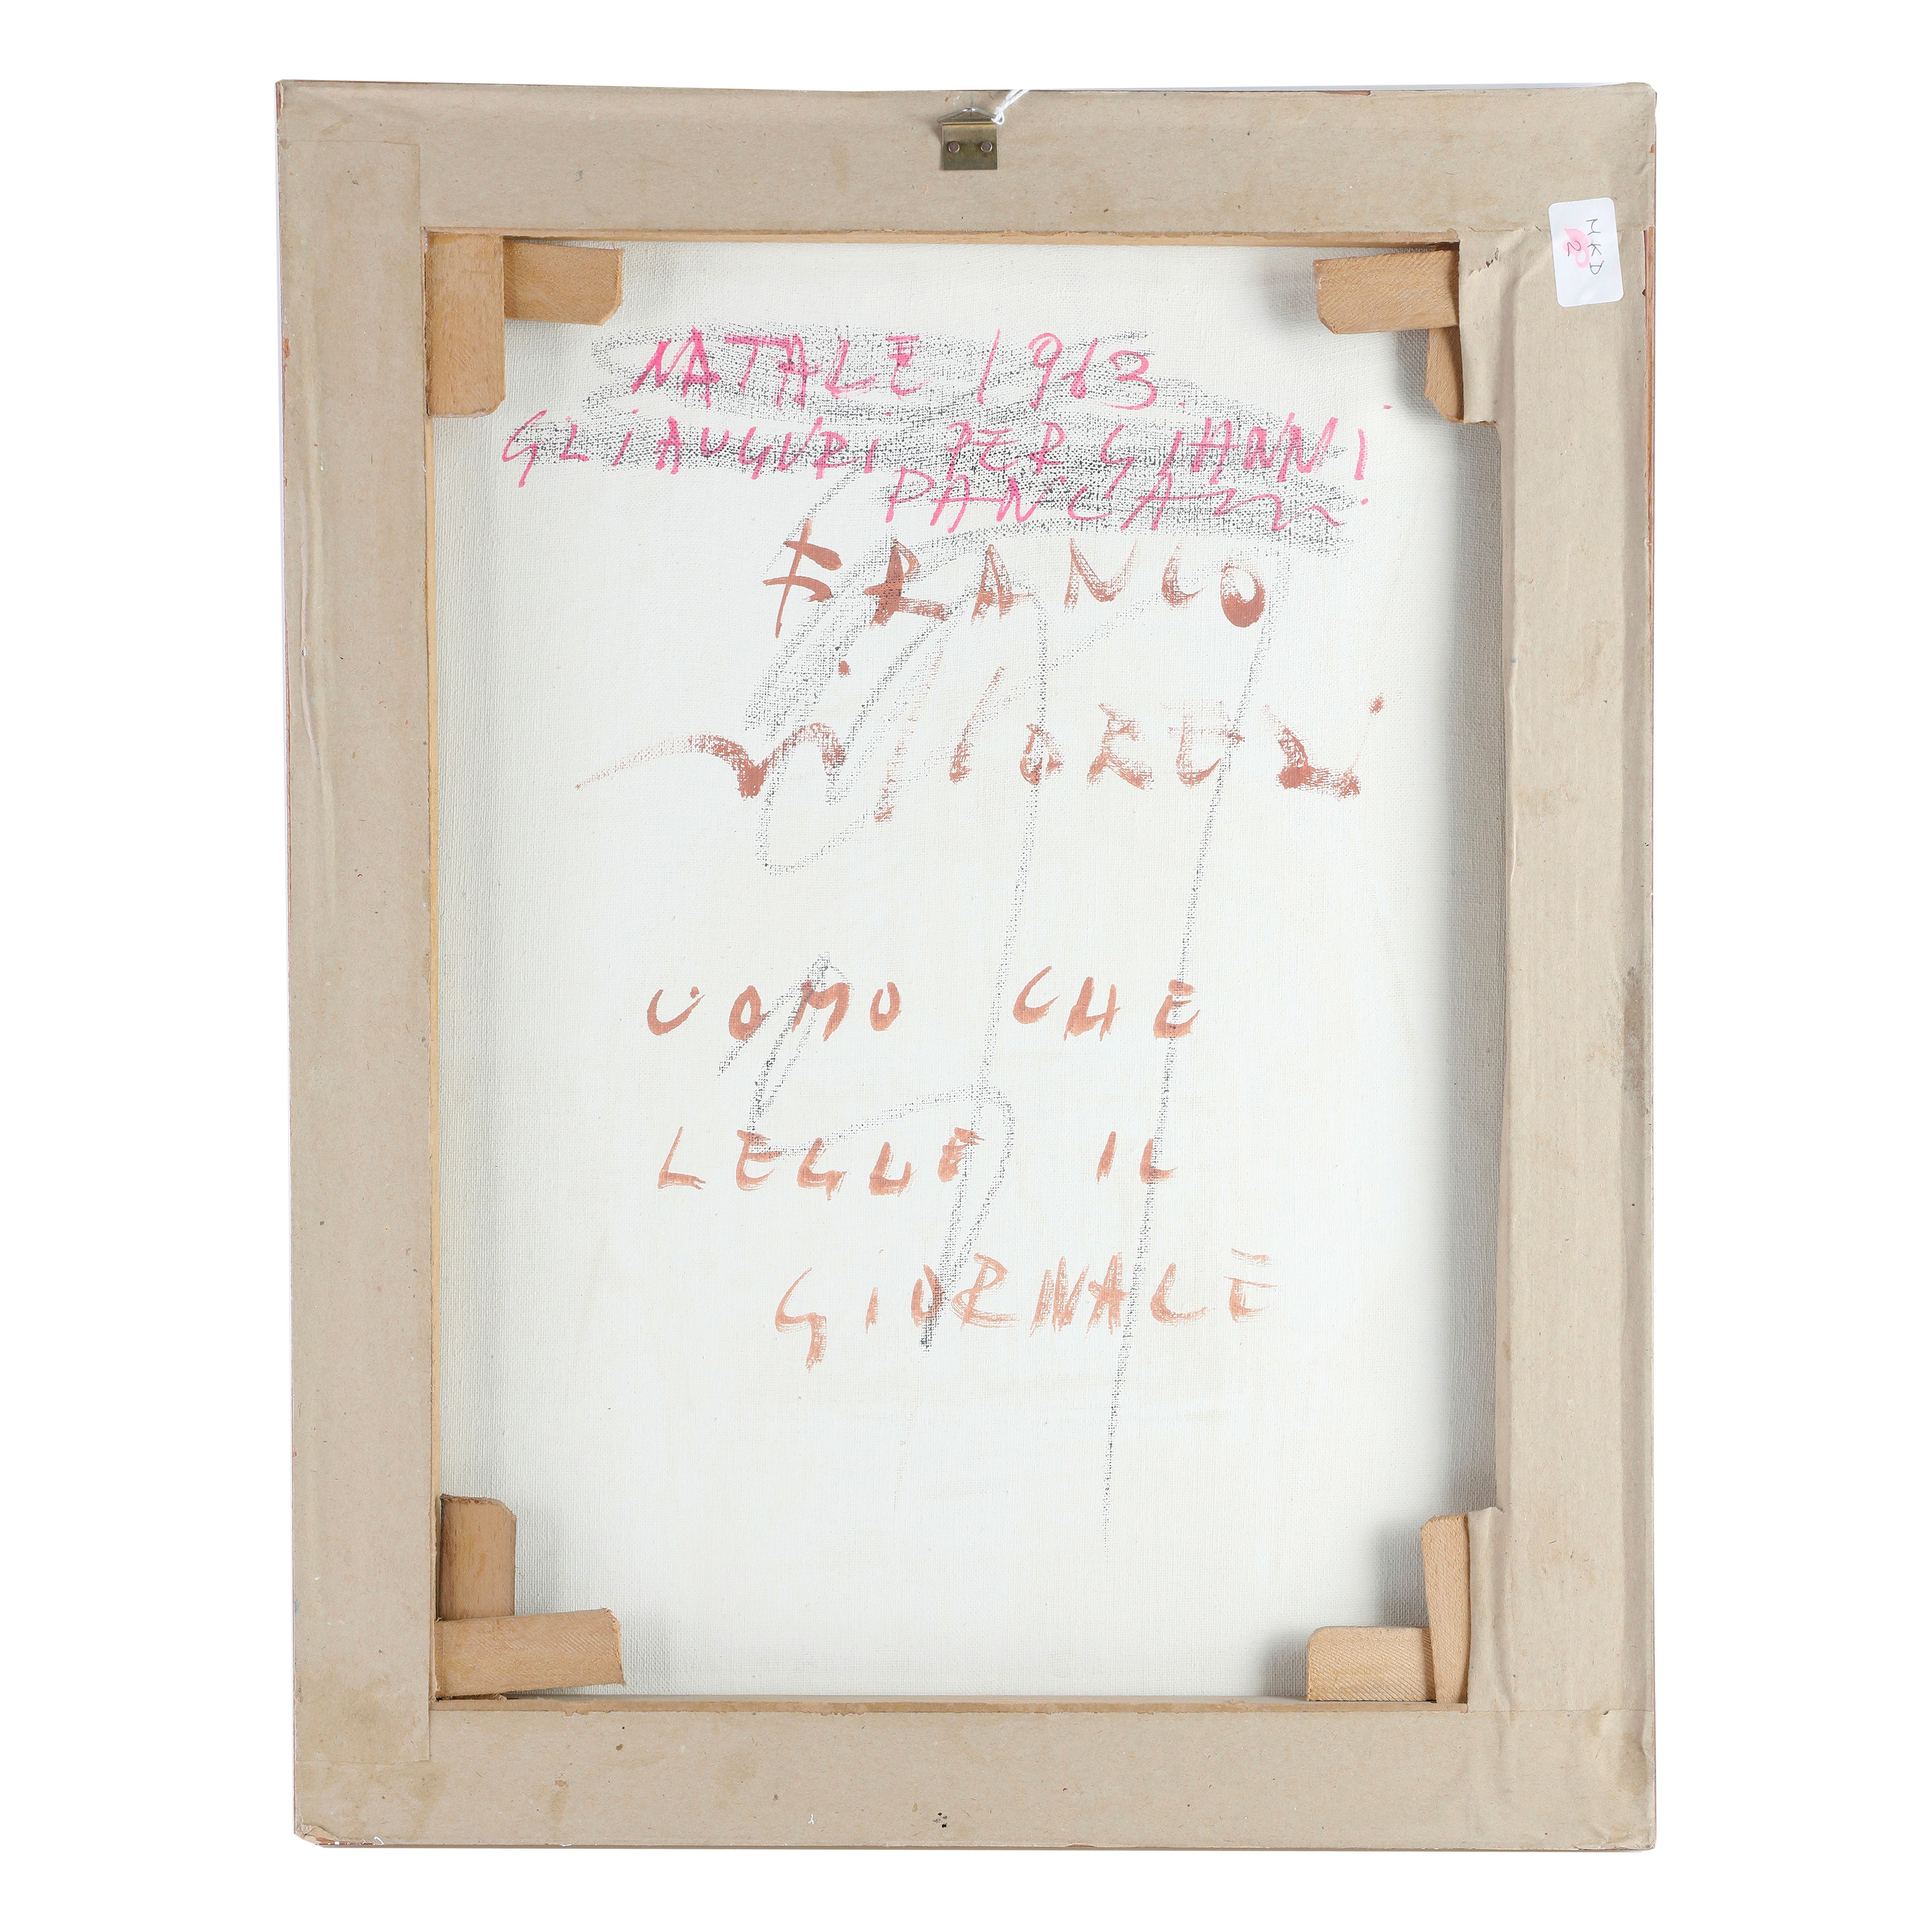 NATALE 1963
GLI AUGURI PER GIANNI
FRANCO
UOMO CHE
LEGGE IL
GIORNALE
MKD
2